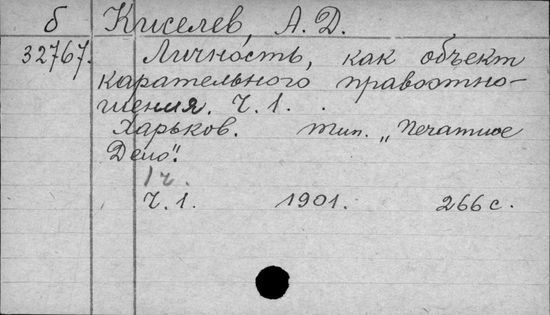 б Киселев, А. Д.
32767. Личность, как объект
карательного правоотно-
шения. Ч. 1.
Харьков. тип. „Печатное
Дело".
1 ч.
Ч. 1. 1901. 266 с.